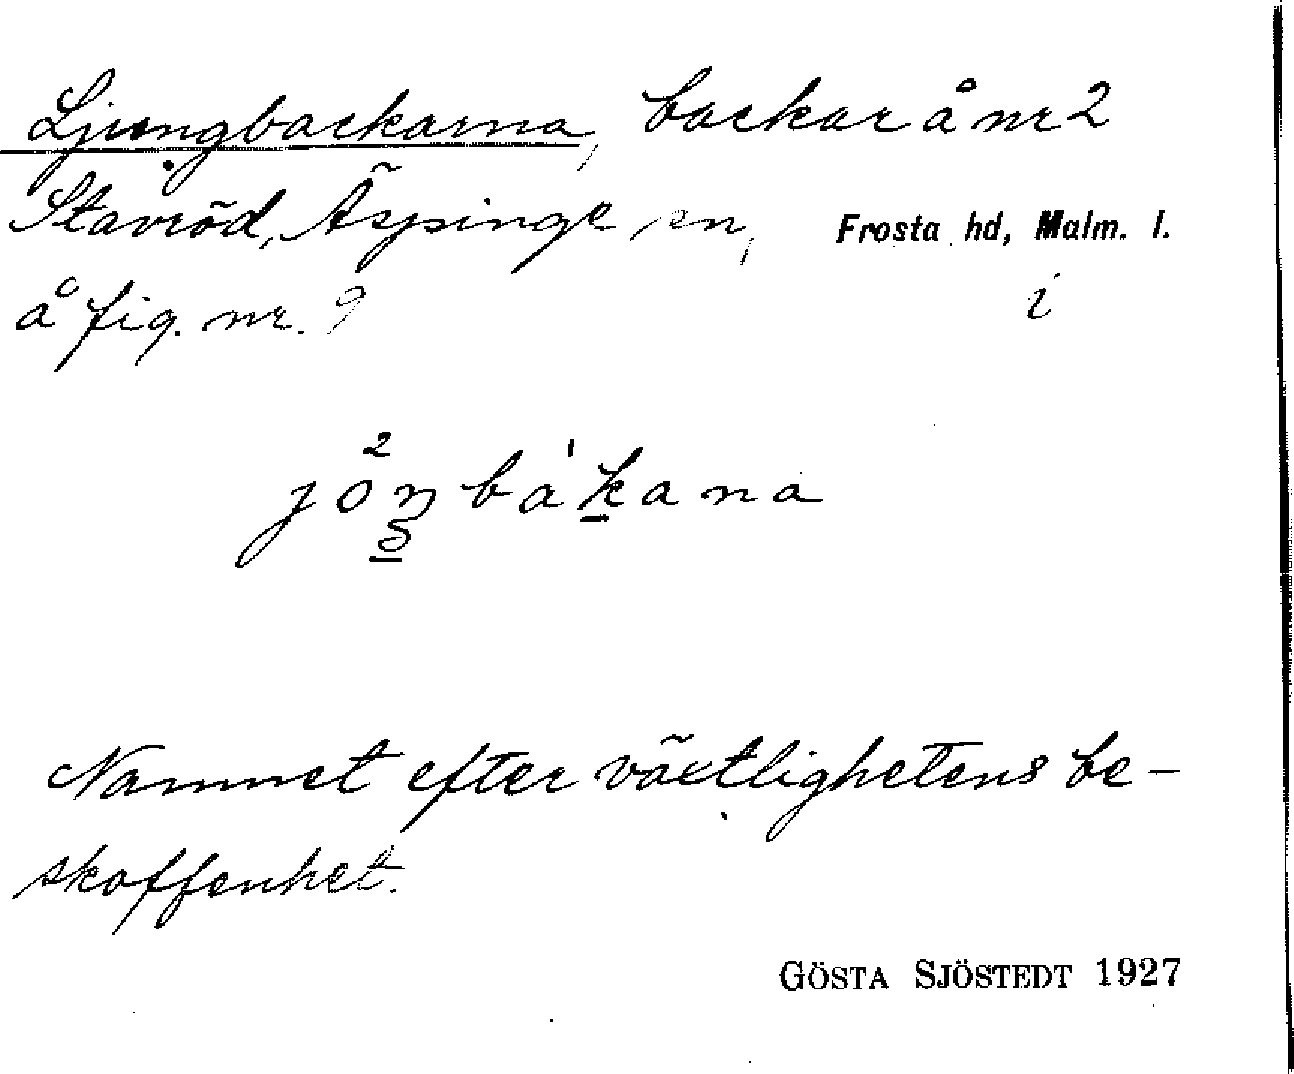 Ljungbackarna, backar å nr 2
Stavröd, Äspinge sn, Frosta hd, Malm. l.
å fig. nr. 9 i
Namnet efter växtlighetens be-
skaffenhet.
GÖSTA SJÖSTEDT 1927